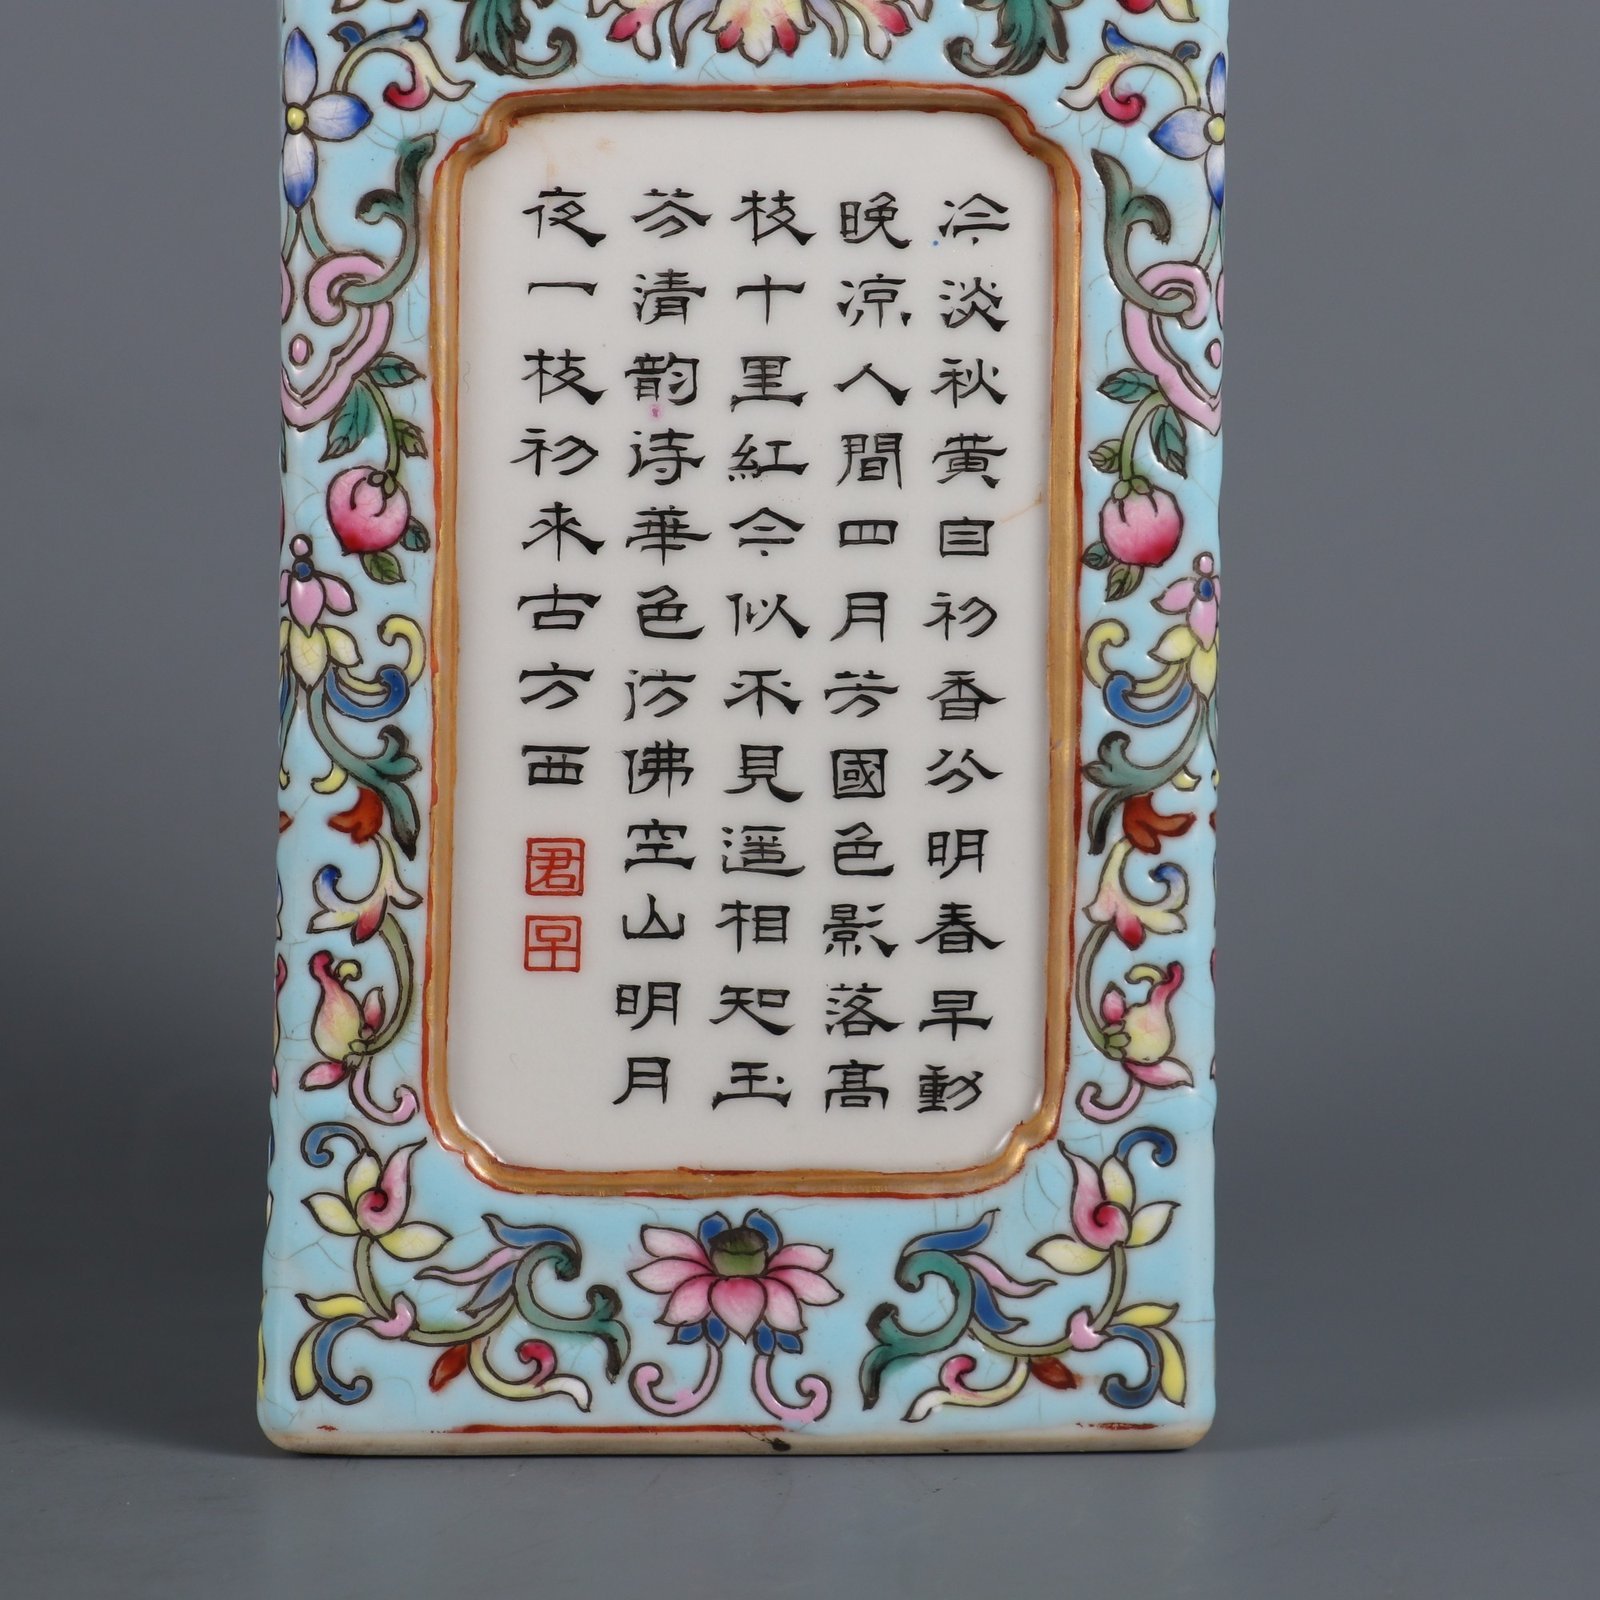 冷淡秋黄自初香分明春早動
晚凉人間四月芳國色影落高
枝十里紅今似不見遥相知玉
芬清韵诗華色汸佛空山明月
夜一枝初来古方西
君